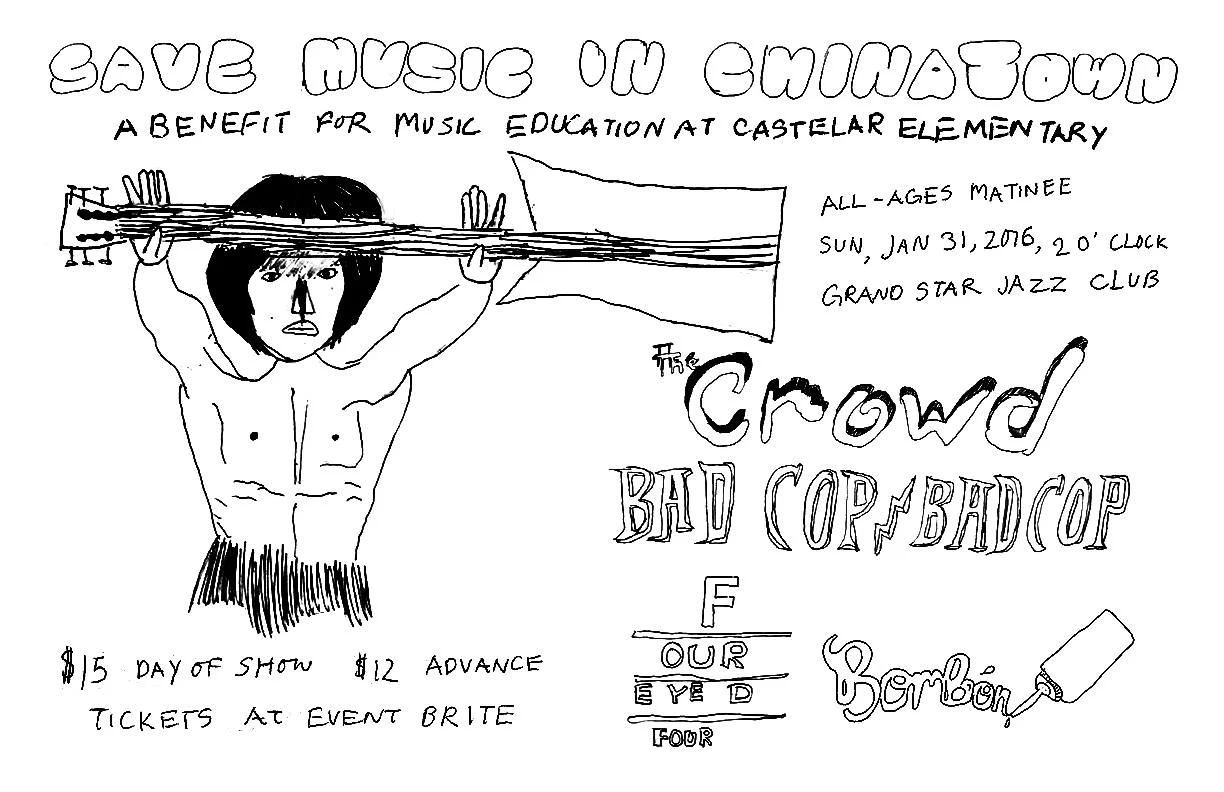 SAVE MUSIC IN CHINATOWN
A BENEFIT FOR MUSIC EDUCATION AT CASTELAR ELEMENTARY
ALL-AGES MATINEE
SUN, JAN 31, 2016, 2 O'CLOCK
GRAND STAR JAZZ CLUB
The Crowd
BAD COP/BAD COP
F
OUR
EYED
FOUR
Bombón
$15 DAY OF SHOW $12 ADVANCE
TICKETS AT EVENT BRITE